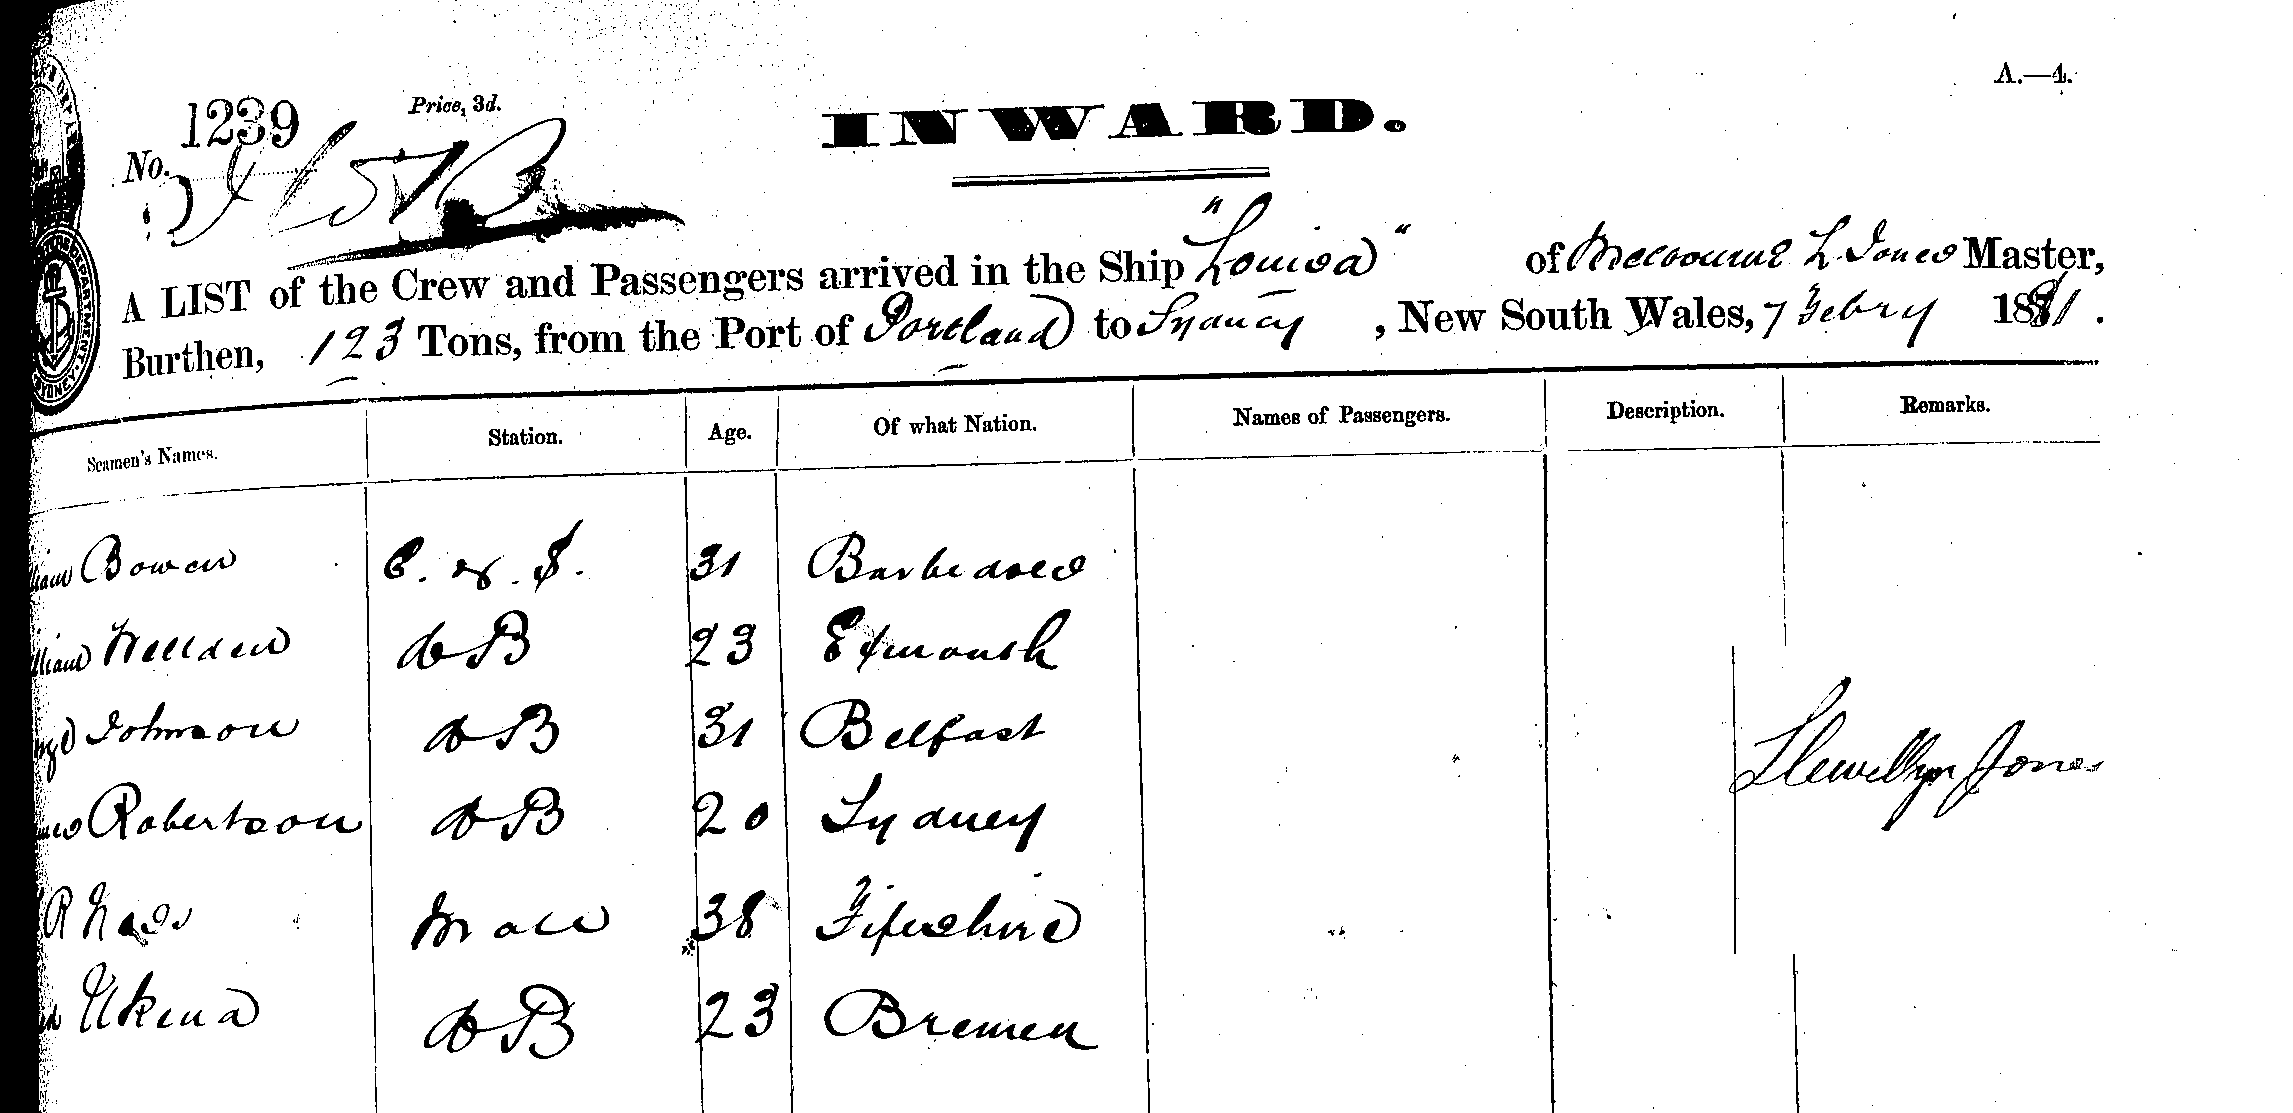 A.—4.
1239
Price, 3d.
INWARD.
No.
A LIST of the Crew and Passengers arrived in the Ship "Louisa" of Melbourne L. Jones Master,
Burthen, 123 Tons, from the Port of Portland to Sydney, New South Wales, 7 Febry 1881.
Seamen's Names. Station. Age. Of what Nation. Names of Passengers. Description. Remarks.
Bowen C. & S. 31 Barbadoes
Wellden AB 23 Exmouth
Johnson AB 31 Belfast
Llewellyn Jones
Robertson AB 20 Sydney
R Mate 38 Fifeshire
Ukena AB 23 Bremen